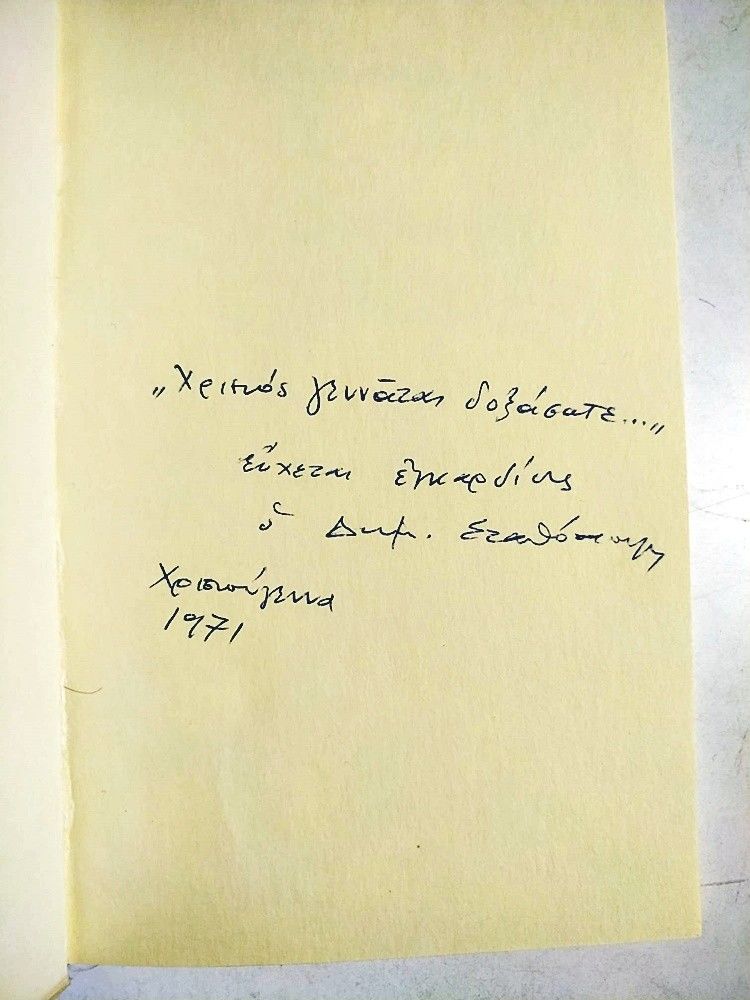 „Χριστός γεννᾶται δοξάσατε...„
εὔχεται ἐγκαρδίως
ὁ Δημ. Σταθόπουλος
Χριστούγεννα
1971